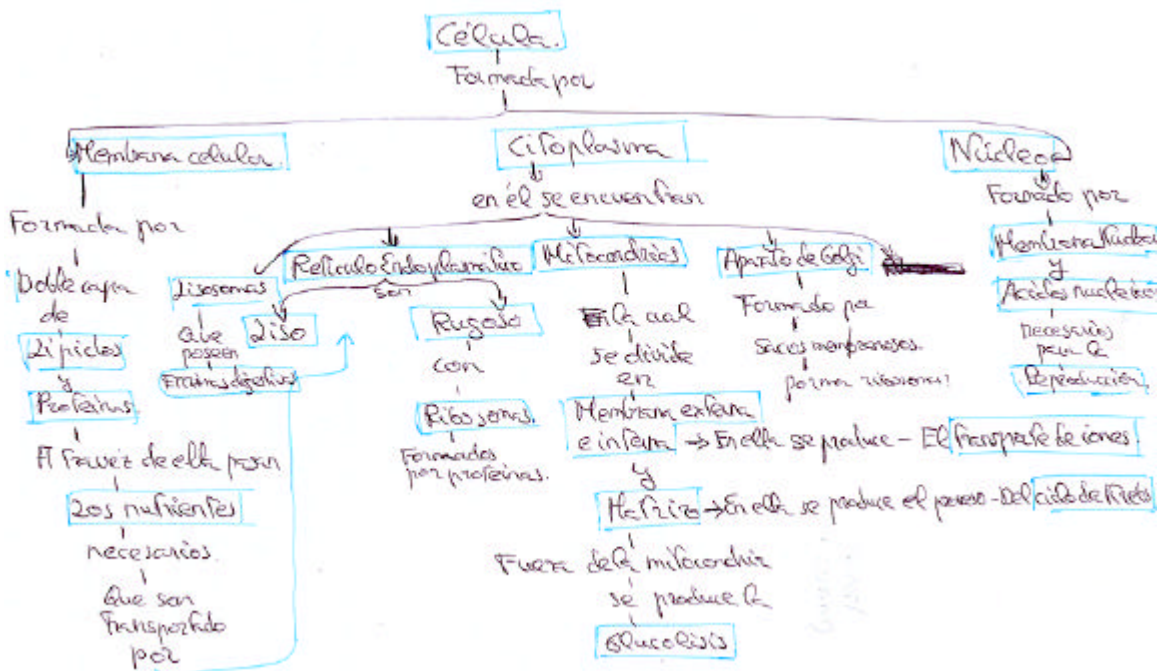 Célula.
Formada por
Membrana celular.
Citoplasma
Núcleo
Formada por
Doble capa
de
Lípidos
y
Proteínas.
A travez de ella pasan
Los nutrientes
necesarios.
Que son
transportado
por
en él se encuentran
Lisosomas
que
poseen
Enzimas digestivas
Retículo Endoplasmático
son
Liso
Rugoso
con
Ribosomas.
Formados
por proteínas.
Mitocondrias
la cual
se divide
en
Membrana externa
e interna → En ella se produce - El transporte de iones.
y
Matriz → En ella se produce el - Del ciclo de Krebs
Fuera de la mitocondria
se produce la
Glucolisis
Aparato de Golgi
Formado por
sacos membranosos.
Formado por
Membrana Nuclear
y
Acidos nucleicos
necesarios
para la
Reproducción.